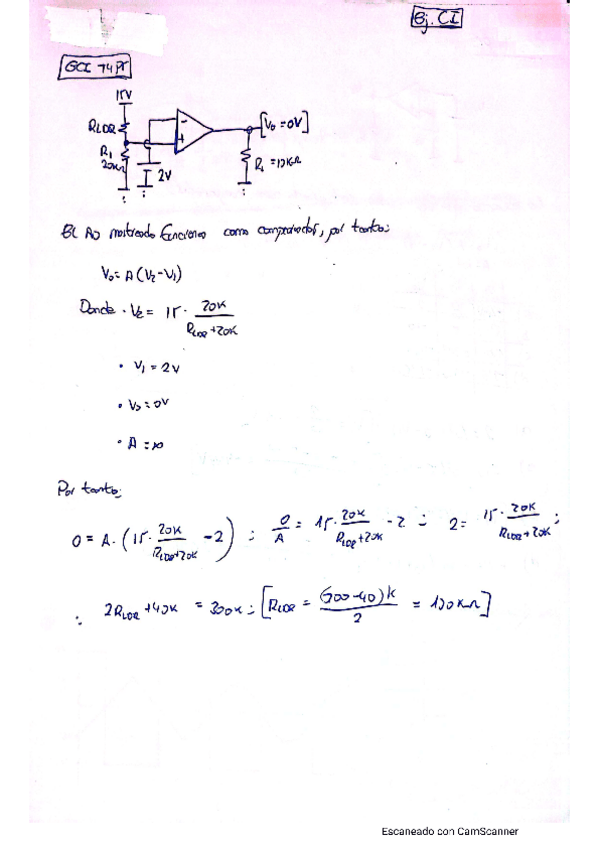 Ej. CI
15V
RLDR
R1
20KΩ
2V
[Vo = 0V]
El AO mostrado funciona como comparador, por tanto:
Vo = A (V2 - V1)
Donde · V2 = 15 · 20K / (RLDR + 20K)
· V1 = 2V
· Vo = 0V
· A = ∞
Por tanto:
0 = A · (15 · 20K / (RLDR + 20K) - 2) ; 0/A = 15 · 20K / (RLDR + 20K) - 2 ; 2 = 15 · 20K / (RLDR + 20K) ;
2RLDR + 40K = 300K ; [RLDR = (300 - 40)K / 2 = 130KΩ]
Escaneado con CamScanner